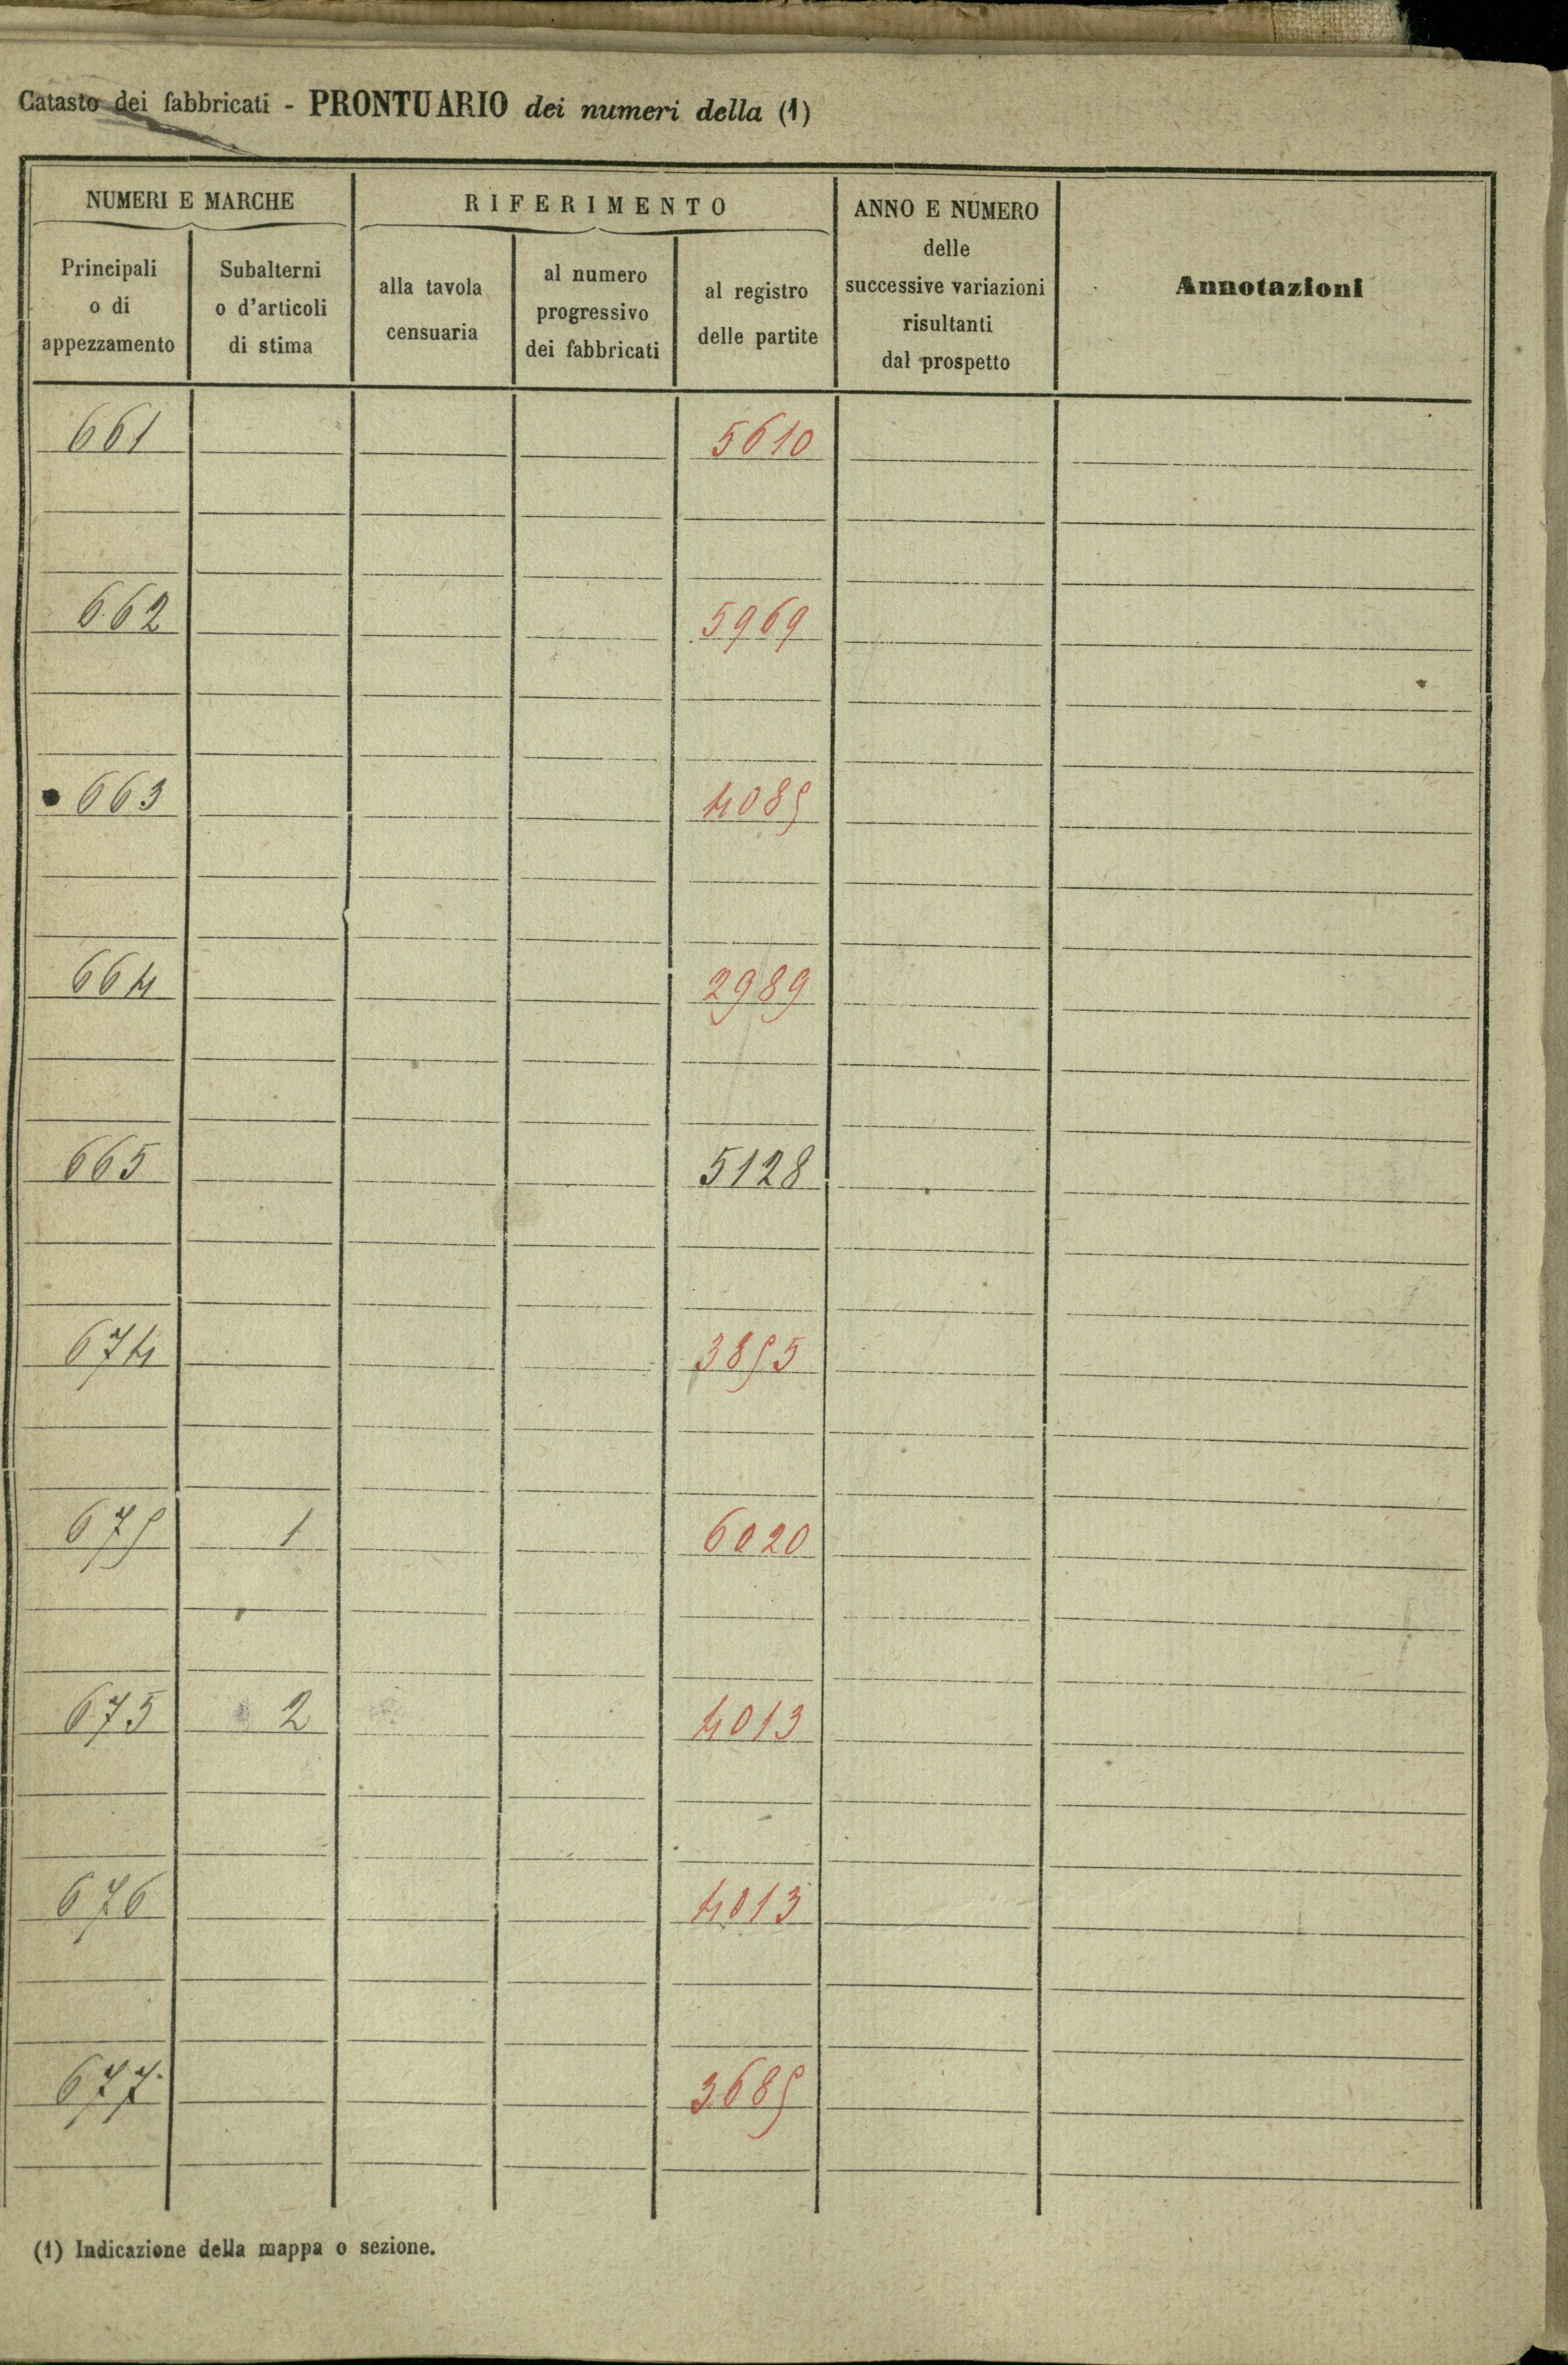 Catasto dei fabbricati - PRONTUARIO dei numeri della (1)
NUMERI E MARCHE
RIFERIMENTO
ANNO E NUMERO
delle
successive variazioni
risultanti
dal prospetto
Annotazioni
Principali
o di
appezzamento
Subalterni
o d'articoli
di stima
alla tavola
censuaria
al numero
progressivo
dei fabbricati
al registro
delle partite
661 5610
662 5969
663 4085
664 2989
665 5128
674 3855
675 1 6020
675 2 4013
676 4013
677 3685
(1) Indicazione della mappa o sezione.